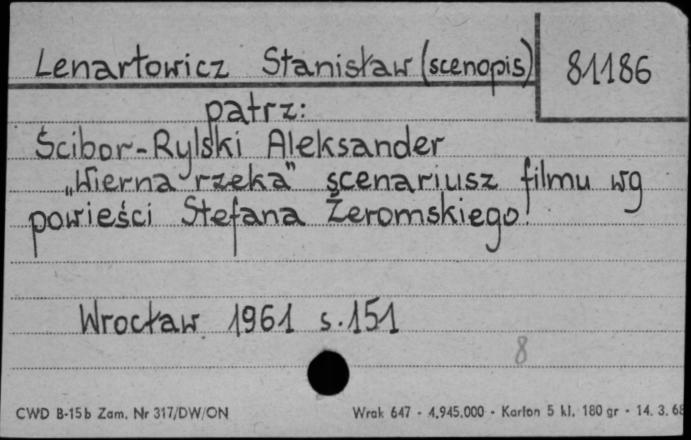 Lenartowicz Stanisław (scenopis) 81186
patrz:
Ścibor-Rylski Aleksander
„Wierna rzeka" scenariusz filmu wg
powieści Stefana Żeromskiego.
Wrocław 1961 s. 151
8
CWD B-15b Zam. Nr 317/DW/ON Wrak 647 - 4.945.000 - Karton 5 kl. 180 gr - 14. 3. 68